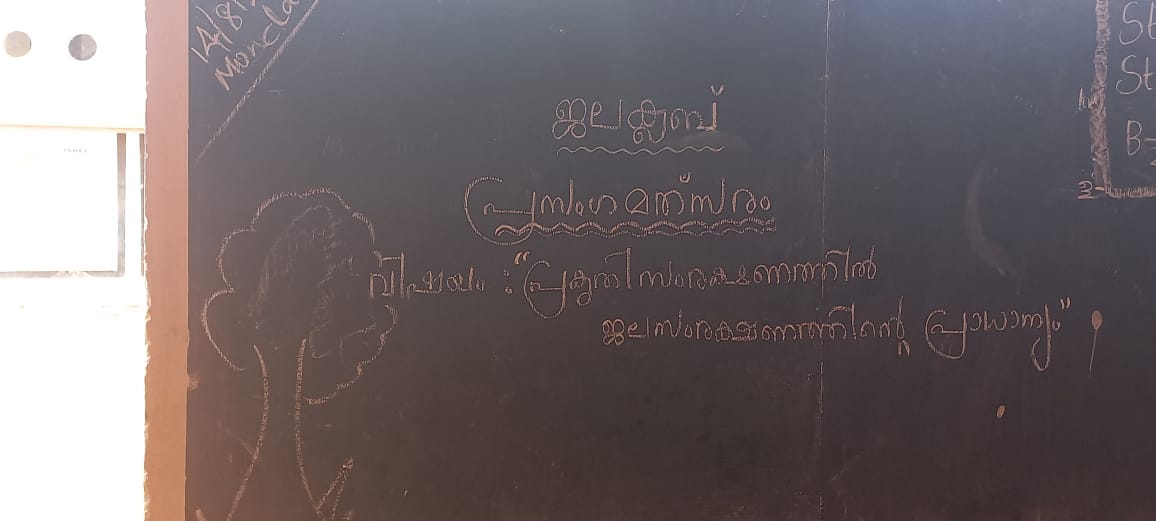 14/8/
Monda
ജലക്ലബ്
പ്രസംഗമത്സരം
വിഷയം : "പ്രകൃതി സംരക്ഷണത്തിൽ
ജലസംരക്ഷണത്തിന്റെ പ്രാധാന്യം"
St
St
B-